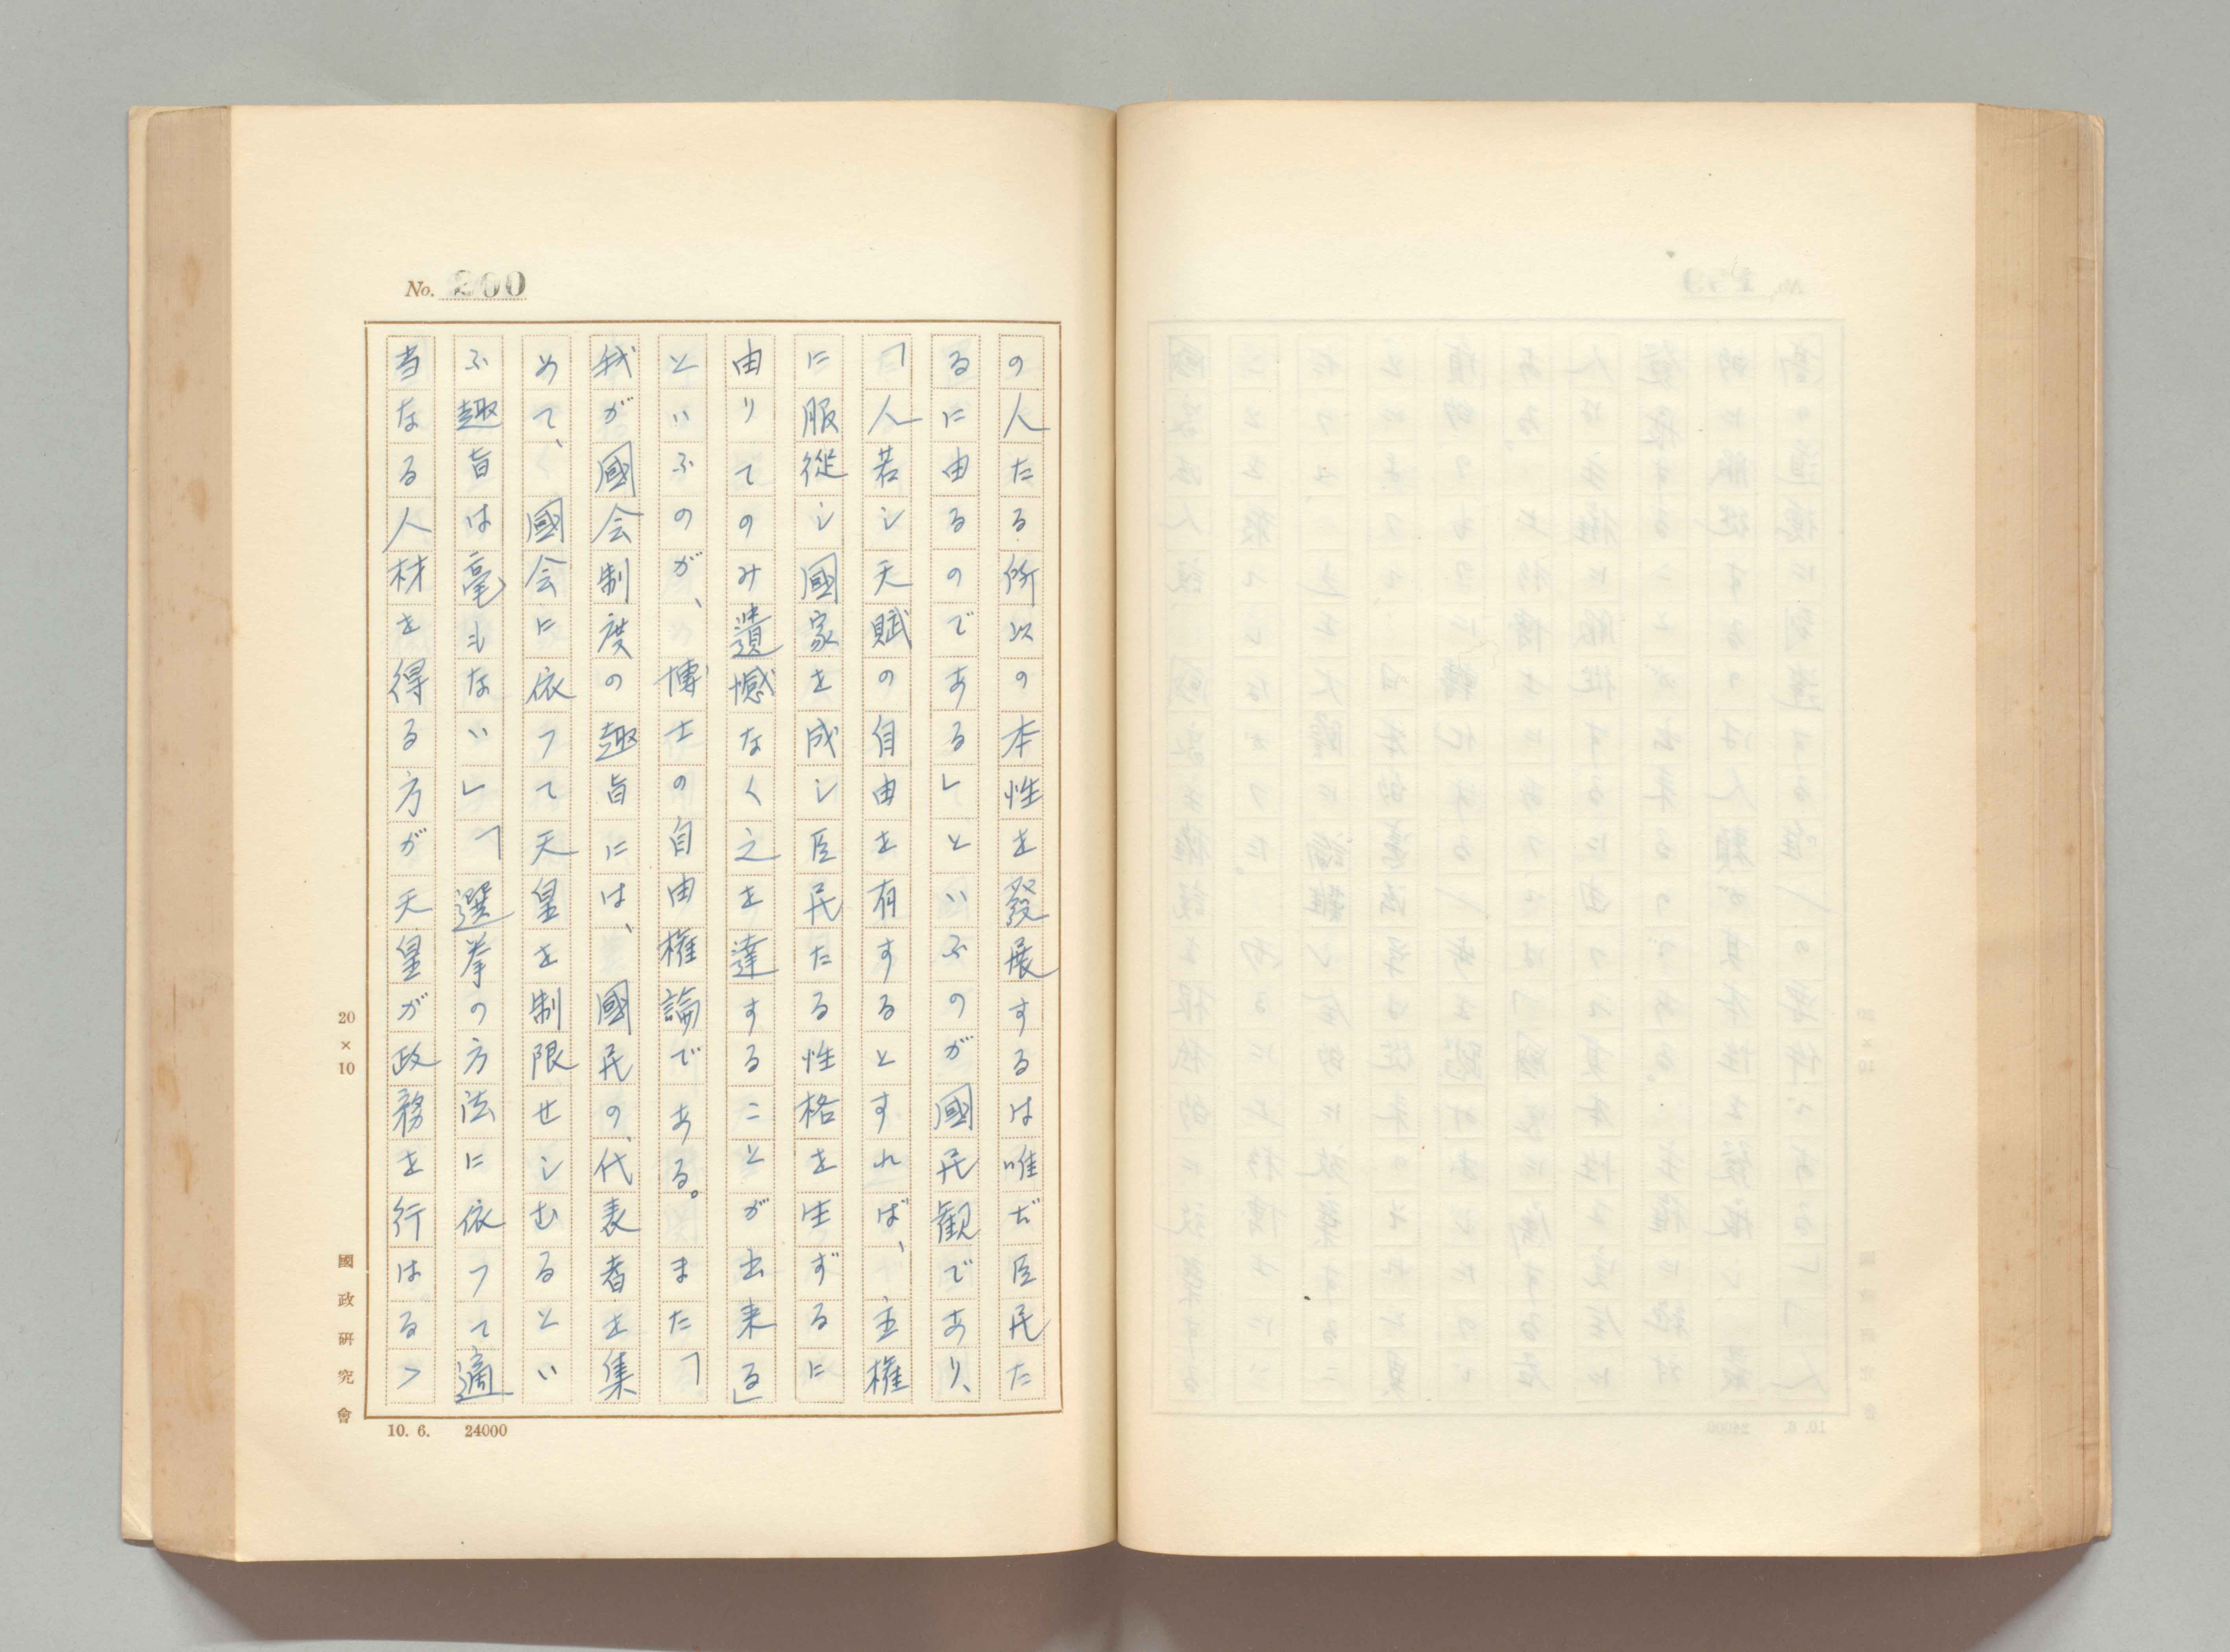 No. 200
の人たる所以の本性を發展するは唯だ臣民た
るに由るのである」といふのが國民観であり、
「人若し天賦の自由を有するとすれば、主権
に服從し國家を成し臣民たる性格を生ずるに
由りてのみ遺憾なく之を達することが出来る」
といふのが、博士の自由権論である。また「
我が國会制度の趣旨には、國民の代表者を集
めて、國会に依つて天皇を制限せしむるとい
ふ趣旨は毫もない」「選挙の方法に依つて適
当なる人材を得る方が天皇が政務を行はるゝ
20×10
國政硏究會
10. 6. 24000